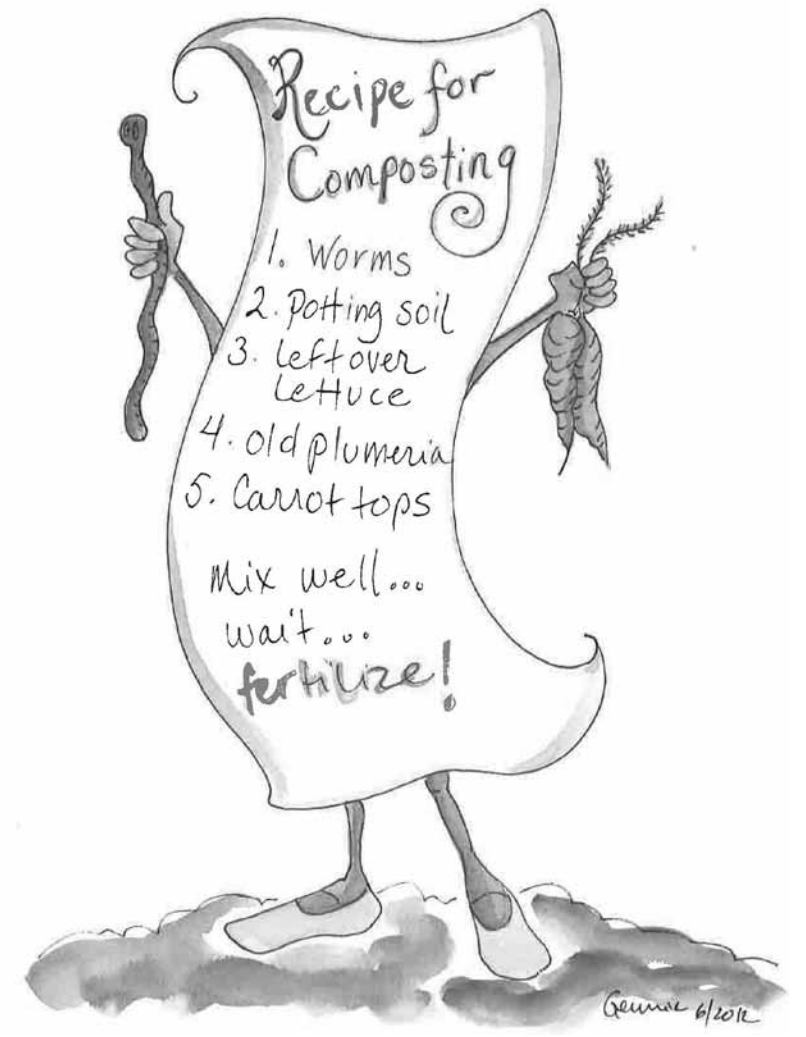 Recipe for
Composting
1. Worms
2. Potting soil
3. Leftover
Lettuce
4. old plumeria
5. Carrot tops
Mix well...
wait...
fertilize!
6/2012